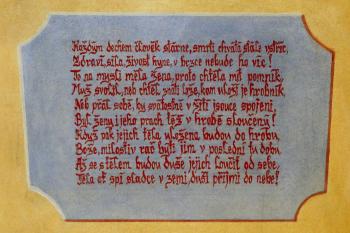 Každým dechem člověk stárne, smrti chvátá stále vstříc,
Zdraví, síla, živost hyne, v brzce nebude ho víc!
To na mysli měla žena, proto chtěla mít pomník,
Muž svolil, neb chtěl znáti lože, kam uloží je hrobník
Neb přál sobě, by svátostně v žití jsouce spojeni,
Byl ženy i jeho prach též v hrobě sloučený!
Když pak jejich těla uložena budou do hrobu,
Bože, milostiv rač býti jim v poslední tu dobu
Až se s tělem budou duše jejich loučit od sebe,
Těla ať spí sladce v zemi, duši přijmi do nebe!